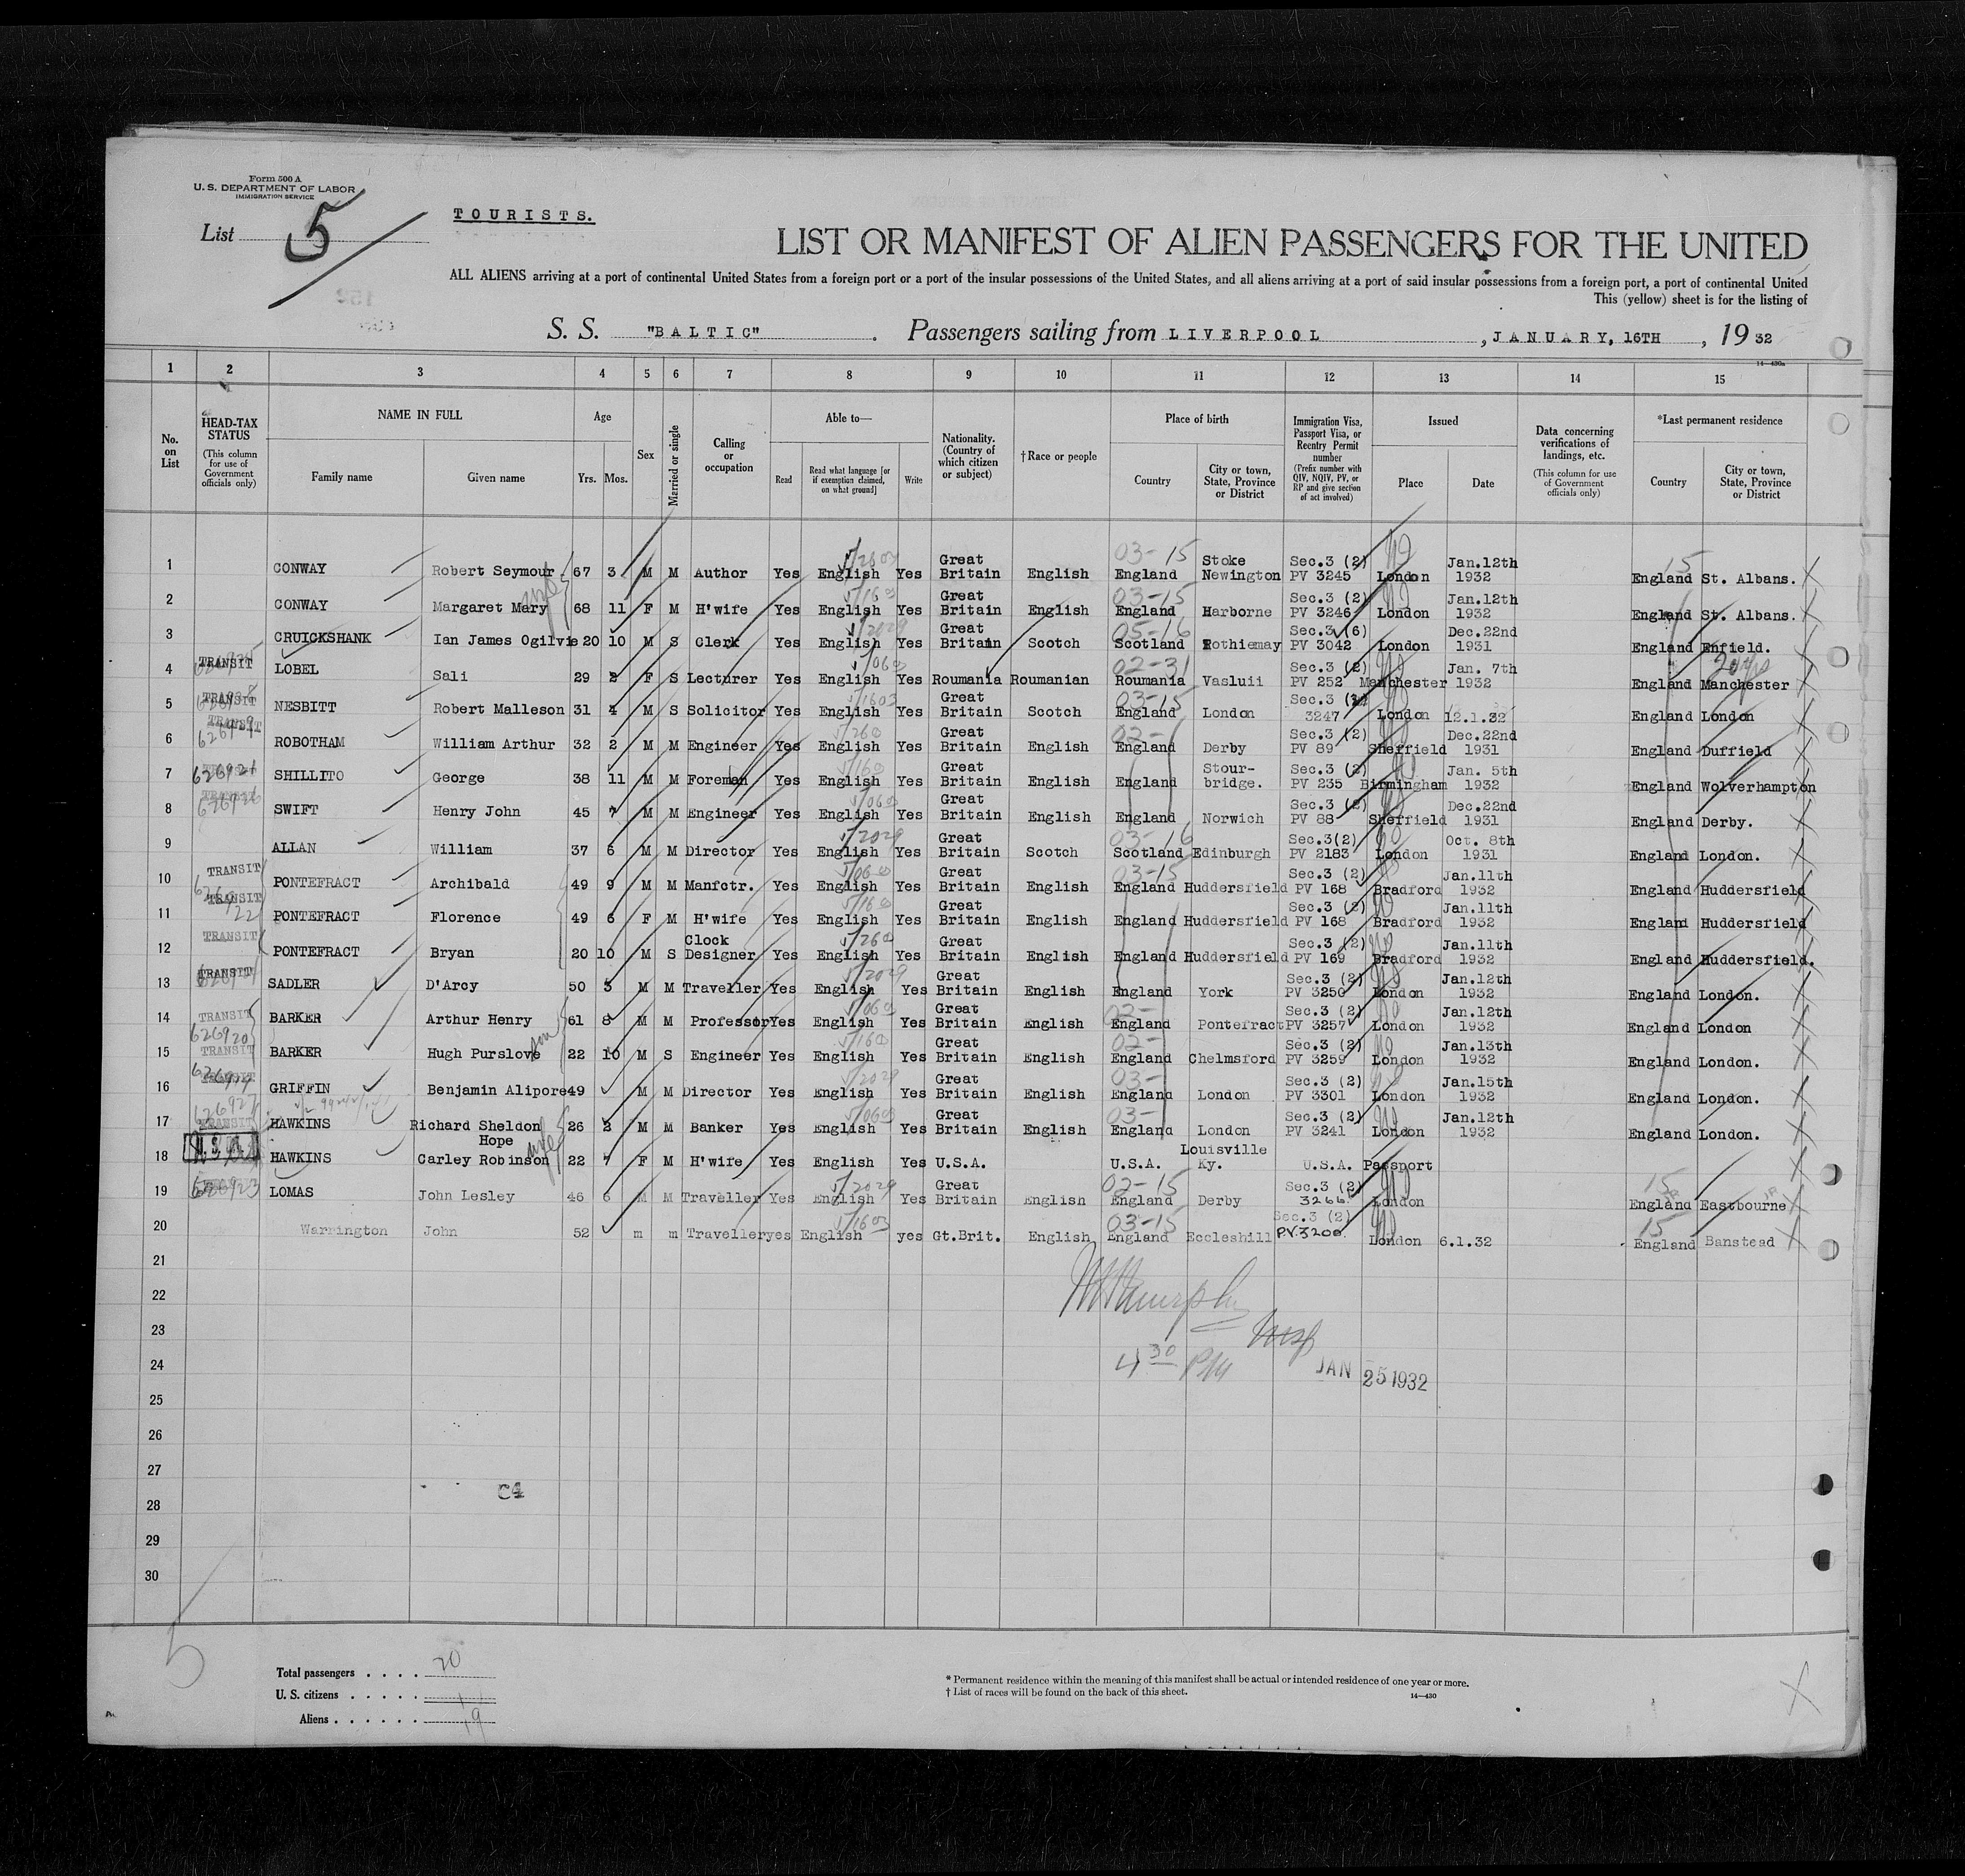 Form 500 A
U. S. DEPARTMENT OF LABOR
IMMIGRATION SERVICE
List 5
TOURISTS.
LIST OR MANIFEST OF ALIEN PASSENGERS FOR THE UNITED
ALL ALIENS arriving at a port of continental United States from a foreign port or a port of the insular possessions of the United States, and all aliens arriving at a port of said insular possessions from a foreign port, a port of continental United
This (yellow) sheet is for the listing of
S. S. "BALTIC" . Passengers sailing from LIVERPOOL , JANUARY, 16TH , 19 32
14—430a
1 2 3 4 5 6 7 8 9 10 11 12 13 14 15
No. on List
HEAD-TAX STATUS (This column for use of Government officials only)
NAME IN FULL Family name Given name
Age Yrs. Mos.
Sex
Married or single
Calling or occupation
Able to— Read Read what language [or if exemption claimed, on what ground] Write
Nationality. (Country of which citizen or subject)
†Race or people
Place of birth Country City or town, State, Province or District
Immigration Visa, Passport Visa, or Reentry Permit number (Prefix number with QIV, NQIV, PV, or RP and give section of act involved)
Issued Place Date
Data concerning verifications of landings, etc. (This column for use of Government officials only)
*Last permanent residence Country City or town, State, Province or District
1 CONWAY Robert Seymour 67 3 M M Author Yes English Yes Great Britain English 03-15 England Stoke Newington Sec.3 (2) PV 3245 London Jan.12th 1932 15 England St. Albans.
2 CONWAY Margaret Mary wife 68 11 F M H'wife Yes English Yes Great Britain English 03-15 England Harborne Sec.3 (2) PV 3246 London Jan.12th 1932 England St. Albans.
3 CRUICKSHANK Ian James Ogilvie 20 10 M S Clerk Yes English Yes Great Britain Scotch 05-16 Scotland Rothiemay Sec.3 (6) PV 3042 London Dec.22nd 1931 England Enfield.
4 TRANSIT LOBEL Sali 29 2 F S Lecturer Yes English Yes Roumania Roumanian 02-31 Roumania Vasluii Sec.3 (2) PV 252 Manchester Jan. 7th 1932 England Manchester
5 TRANSIT NESBITT Robert Malleson 31 4 M S Solicitor Yes English Yes Great Britain Scotch 03-15 England London Sec.3 (2) 3247 London 12.1.32 England London
6 TRANSIT ROBOTHAM William Arthur 32 2 M M Engineer Yes English Yes Great Britain English 02- England Derby Sec.3 (2) PV 89 Sheffield Dec.22nd 1931 England Duffield
7 626921 SHILLITO George 38 11 M M Foreman Yes English Yes Great Britain English England Stour-bridge. Sec.3 (2) PV 235 Birmingham Jan. 5th 1932 England Wolverhampton
8 TRANSIT 626926 SWIFT Henry John 45 7 M M Engineer Yes English Yes Great Britain English England Norwich Sec.3 (2) PV 88 Sheffield Dec.22nd 1931 England Derby.
9 ALLAN William 37 6 M M Director Yes English Yes Great Britain Scotch 03-16 Scotland Edinburgh Sec.3(2) PV 2183 London Oct. 8th 1931 England London.
10 TRANSIT PONTEFRACT Archibald 49 9 M M Manfctr. Yes English Yes Great Britain English 03-15 England Huddersfield Sec.3 (2) PV 168 Bradford Jan.11th 1932 England Huddersfield
11 TRANSIT PONTEFRACT Florence 49 6 F M H'wife Yes English Yes Great Britain English England Huddersfield Sec.3 (2) PV 168 Bradford Jan.11th 1932 England Huddersfield
12 TRANSIT PONTEFRACT Bryan 20 10 M S Clock Designer Yes English Yes Great Britain English England Huddersfield Sec.3 (2) PV 169 Bradford Jan.11th 1932 England Huddersfield.
13 TRANSIT SADLER D'Arcy 50 3 M M Traveller Yes English Yes Great Britain English England York Sec.3 (2) PV 3250 London Jan.12th 1932 England London.
14 TRANSIT BARKER Arthur Henry 61 8 M M Professor Yes English Yes Great Britain English 02- England Pontefract Sec.3 (2) PV 3257 London Jan.12th 1932 England London
15 626920 TRANSIT BARKER Hugh Purslove son 22 10 M S Engineer Yes English Yes Great Britain English 02- England Chelmsford Sec.3 (2) PV 3259 London Jan.13th 1932 England London.
16 TRANSIT GRIFFIN Benjamin Alipore 49 M M Director Yes English Yes Great Britain English 03- England London Sec.3 (2) PV 3301 London Jan.15th 1932 England London.
17 626927 TRANSIT HAWKINS Richard Sheldon 26 2 M M Banker Yes English Yes Great Britain English 03- England London Sec.3 (2) PV 3241 London Jan.12th 1932 England London.
18 U.S.A. HAWKINS Hope Carley Robinson wife 22 7 F M H'wife Yes English Yes U.S.A. U.S.A. Louisville Ky. U.S.A. Passport
19 626923 LOMAS John Lesley 46 6 M M Traveller Yes English Yes Great Britain English 02-15 England Derby Sec.3 (2) 3266 London 15 England Eastbourne
20 Warrington John 52 m m Traveller yes English yes Gt.Brit. English 03-15 England Eccleshill Sec.3 (2) PV.3200 London 6.1.32 15 England Banstead
21
22
23
24
25
26
27
28
29
30
Murphy
Insp
4 30 PM JAN 25 1932
C4
5
Total passengers . . . . 20
U. S. citizens . . . . . 1
Aliens . . . . . . 19
* Permanent residence within the meaning of this manifest shall be actual or intended residence of one year or more.
† List of races will be found on the back of this sheet. 14—430